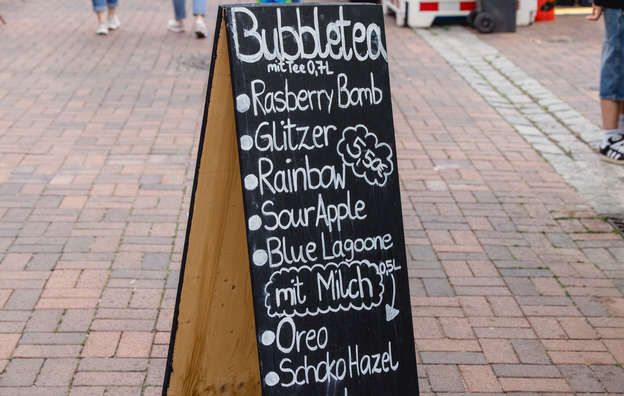 Bubbletea
mit Tee 0,7L
Rasberry Bomb
Glitzer
5,50€
Rainbow
Sour Apple
Blue Lagoone
mit Milch 0,5L
Oreo
Schoko Hazel